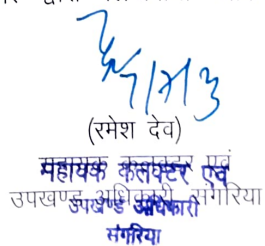 (रमेश देव)
सहायक कलक्टर एवं
उपखण्ड अधिकारी, संगरिया
सहायक कलक्टर एवं
उपखण्ड अधिकारी
संगरिया